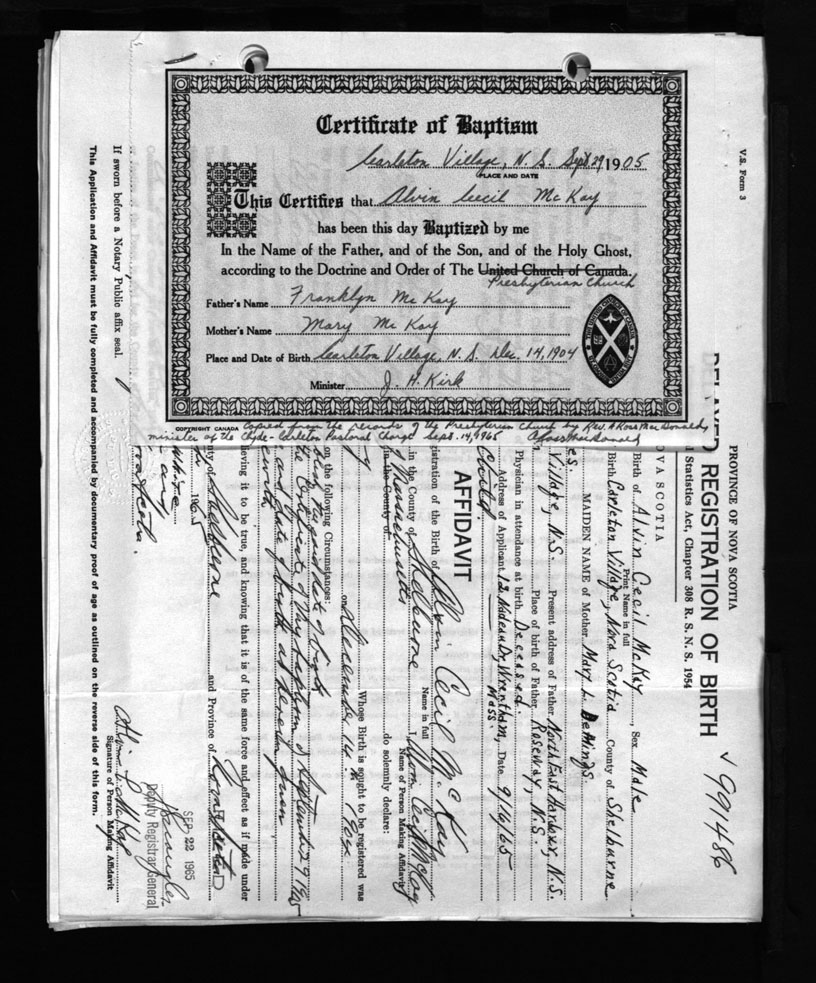 Certificate of Baptism
Carleton Village, N. S. Sept 29, 1905
PLACE AND DATE
This Certifies that Alvin Cecil McKay
has been this day Baptized by me
In the Name of the Father, and of the Son, and of the Holy Ghost,
according to the Doctrine and Order of The United Church of Canada.
Presbyterian Church
Father's Name Franklyn McKay
Mother's Name Mary McKay
Place and Date of Birth Carleton Village, N. S. Dec. 14, 1904
Minister J. H. Kirk
COPYRIGHT CANADA Copied from the records of the Presbyterian Church by Rev. A Ross MacDonald,
minister of the Clyde-Carleton Pastoral Charge Sept. 14, 1965 A Ross MacDonald
V.S. Form 3
PROVINCE OF NOVA SCOTIA
DELAYED REGISTRATION OF BIRTH
991486
l Statistics Act, Chapter 308 R. S. N. S. 1954
OVA SCOTIA
Birth of Alvin Cecil McKay, Sex Male
Print Name in full
Birth Carleton Village, Nova Scotia County of Shelburne
MAIDEN NAME of Mother Mary L. DeMings.
Village, N.S. Present address of Father North East Harbour, N.S.
Place of birth of Father Roseway, N.S.
Physician in attendance at birth Deceased.
Address of Applicant 12 Nadean Dr. Wrentham, Mass. Date 9/16/65
Child.
AFFIDAVIT
istration of the Birth of Alvin Cecil McKay
Name in full
in the County of Shelburne I, Alvin Cecil McKay
Name of Person Making Affidavit
in the County of
of Massachusetts do solemnly declare:
Whose Birth is sought to be registered was
on December 14th 1904
on the following Circumstances:
the Certificate of my baptism of September 29 1905
and date of birth as herein given
eving it to be true, and knowing that it is of the same force and effect as if made under
ty of Shelburne and Province of Nova Scotia
1965
Alvin C. McKay
Signature of Person Making Affidavit
SEP 22 1965
Deputy Registrar General
If sworn before a Notary Public affix seal.
This Application and Affidavit must be fully completed and accompanied by documentary proof of age as outlined on the reverse side of this form.